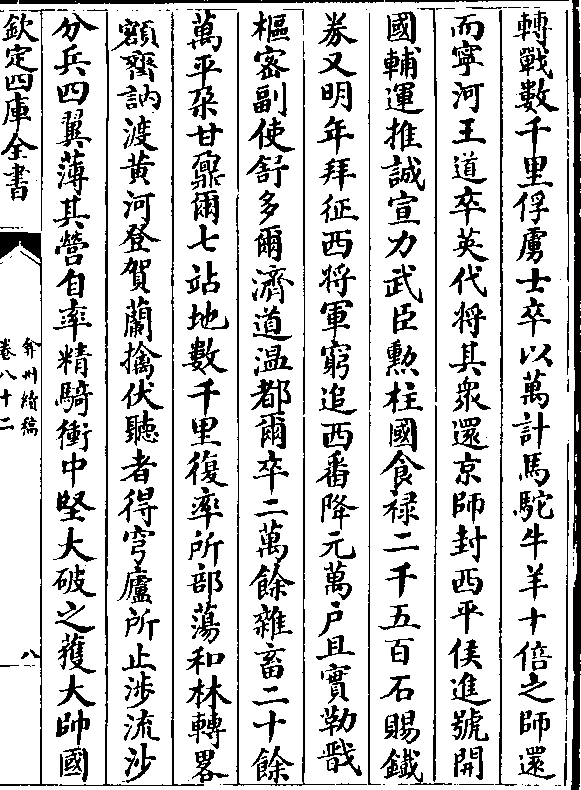 轉戰數千里俘虜士卒以萬計馬駝牛羊十倍之師還
而寧河王道卒英代將其衆還京師封西平侯進號開
國輔運推誠宣力武臣勲柱國食禄二千五百石賜鐵
券又明年拜征西將軍窮追西番降元萬户且實勒戩
樞密副使舒多爾濟道温都爾卒二萬餘雜畜二十餘
萬平朶甘鼐爾七站地數千里復率所部蕩和林轉畧
額齊訥渡黄河登賀蘭擒伏聽者得穹廬所止涉流沙
分兵四翼薄其營自率精騎衝中堅大破之獲大帥國
欽定四庫全書
弇州續稿
卷八十二
八